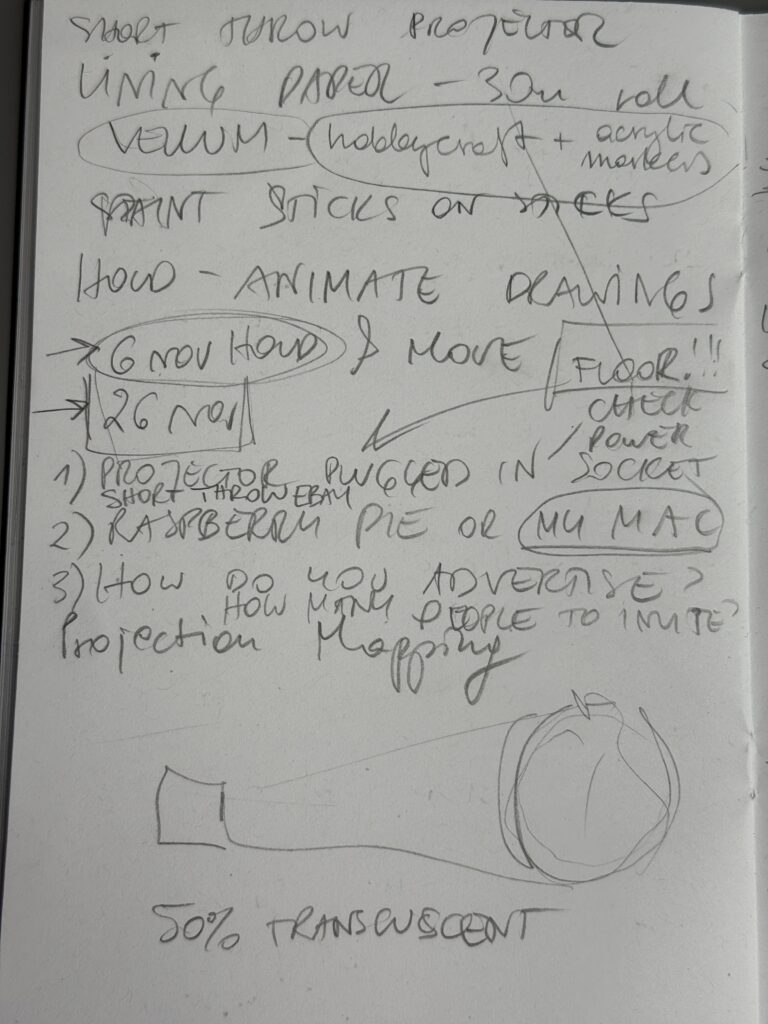 SHORT THROW PROJECTOR
LINING PAPER - 30m roll
VELLUM - hobbycraft + acrylic markers
PAINT STICKS ON STICKS
HOLD - ANIMATE DRAWINGS
→ 6 NOV HOLD & MOVE
FLOOR!!!
→ 26 NOV
CHECK
POWER
SOCKET
1) PROJECTOR PLUGGED IN
SHORT THROW EBAY
2) RASPBERRY PIE OR MY MAC
3) HOW DO YOU ADVERTISE?
HOW MANY PEOPLE TO INVITE?
Projection Mapping
50% TRANSLUSCENT